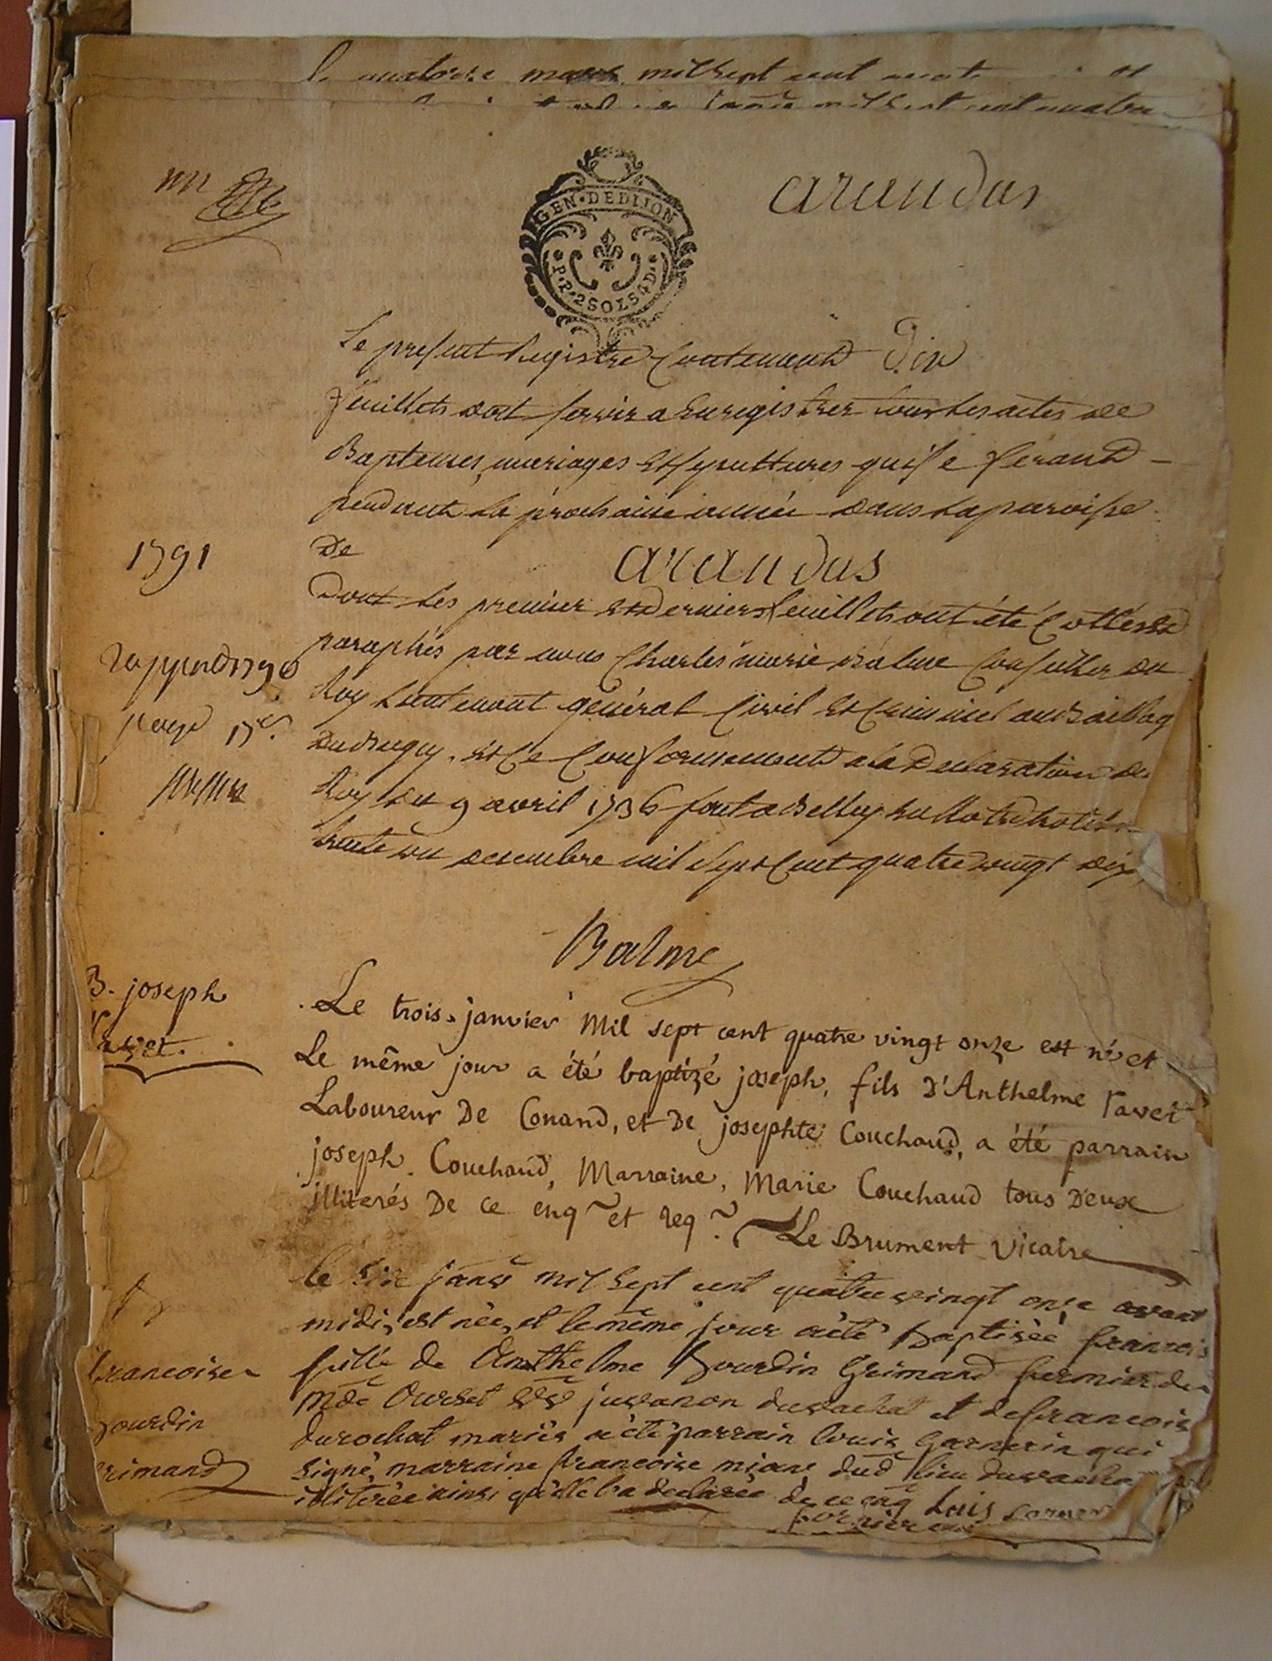 quatorze mars mil sept cent
GEN · DE DIJON
P · P · 2 SOLS 4 D ·
arandas
Le present Registre Contenant Dix
feuillets doit servir a Enregistrer tous les actes de
Baptemes, mariages et sepultures qui se feront
pendant la prochaine année dans la paroisse
1791
De arandas
Dont les premier et derniers feuillets ont été Cottés et
paraphés par nous Charles marie Balme Conseiller du
Roy Lieutenant général Civil et Criminel au Bailliag
Du Bugey. et Ce Conformement a la Declaration du
Roy du 9 avril 1736 fait a Belley en Notre hotel
trente un decembre mil sept Cent quatre vingt dix
Balme
B. joseph
ravet.
Le trois janvier Mil sept cent quatre vingt onze est né et
Le même jour a été baptizé joseph, fils D'Anthelme ravet
Laboureur De Conand, et De josephte Couchaud, a été parrain
joseph Couchaud, Marraine, Marie Couchaud tous Deux
illiterés De ce enq et req. Le Brument Vicaire
francoise
Bourdin
Grimand
le six janv mil sept cent quatre vingt onze avant
midi, est née, et le même jour a été Baptisée francois
fille de Anthelme Bourdin Grimand fermier de
mde Ourset juvanon du vachat et de francoise
durochat mariés a été parrain louis Garnerin qui
signé, marraine francoise miane dud lieu du vacha
illiterée ainsi qu'elle l'a declarée de ce enq Luis Garner